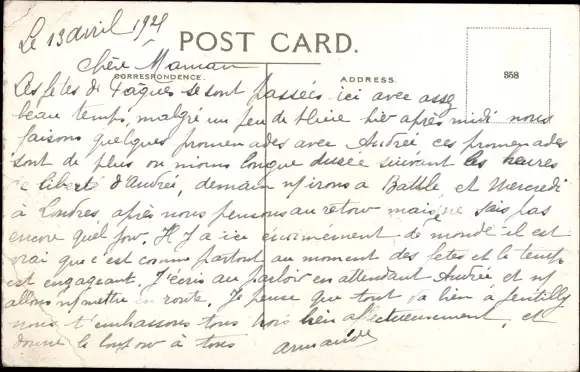 Le 13 avril 192
POST CARD.
Chère Maman
CORRESPONDENCE.
ADDRESS.
358
Les fêtes de Pâques se sont passées ici avec assez
beau temps, malgré un peu de pluie hier après midi nous
faisons quelques promenades avec Andrée, ces promenades
sont de plus ou moins longue durée suivant les heures
de liberté d'Andrée, demain ns irons à Battle et Mercredi
à Londres, après nous pensons au retour mais je ne sais pas
encore quel jour. Il y a ici énormément de monde il est
vrai que c'est comme partout au moment des fetes et le temps
est engageant. J'écris au parloir en attendant Andrée et ns
allons ns mettre en route. Je pense que tout va bien à Gentilly
nous t'embrassons tous trois bien affectueusement, et
donne le bonjour à tous
Armande